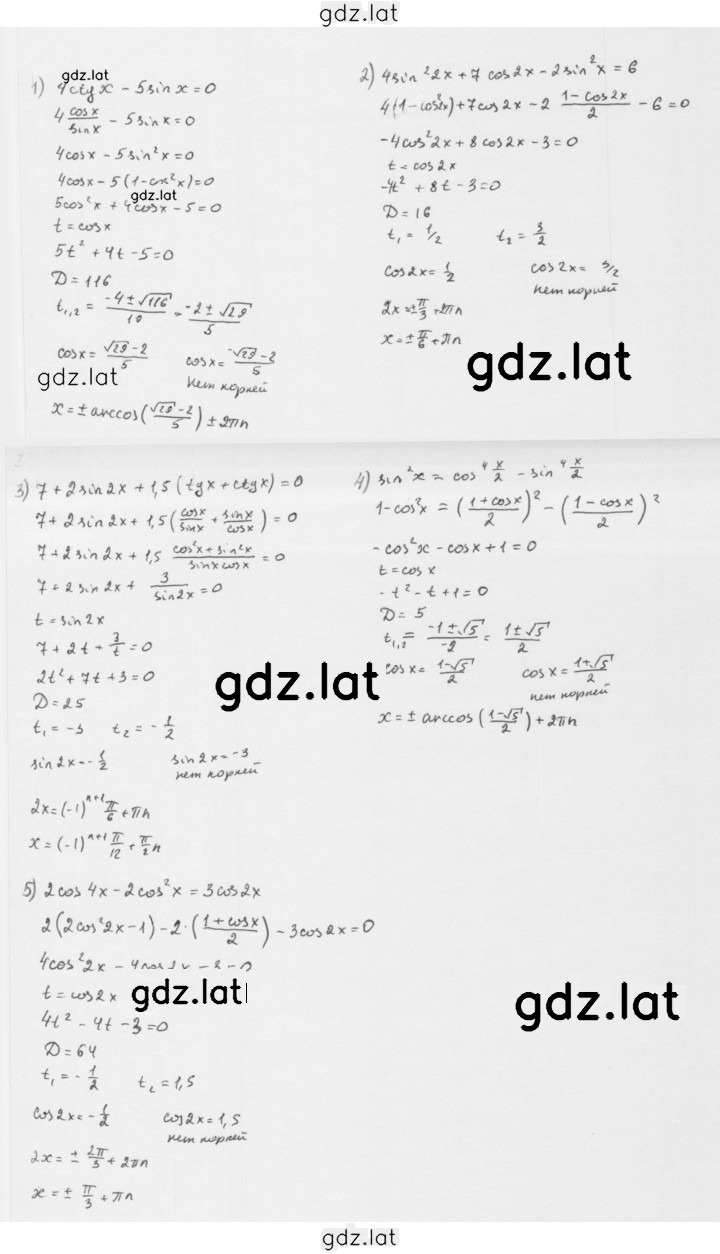 gdz.lat
1) 4ctgx - 5sinx = 0
4 cosx/sinx - 5sinx = 0
4cosx - 5sin²x = 0
4cosx - 5(1-cos²x) = 0
5cos²x + 4cosx - 5 = 0
t = cosx
5t² + 4t - 5 = 0
D = 116
t₁,₂ = (-4±√116)/10 = (-2±√29)/5
cosx = (√29-2)/5    cosx = (-√29-2)/5
нет корней
x = ± arccos((√29-2)/5) ± 2πn
2) 4sin²2x + 7cos2x - 2sin²x = 6
4(1-cos²2x) + 7cos2x - 2 (1-cos2x)/2 - 6 = 0
-4cos²2x + 8cos2x - 3 = 0
t = cos2x
-4t² + 8t - 3 = 0
D = 16
t₁ = 1/2    t₂ = 3/2
cos2x = 1/2    cos2x = 3/2
нет корней
2x = ±π/3 + 2πn
x = ±π/6 + πn
gdz.lat
gdz.lat
gdz.lat
gdz.lat
3) 7 + 2sin2x + 1,5(tgx + ctgx) = 0
7 + 2sin2x + 1,5(cosx/sinx + sinx/cosx) = 0
7 + 2sin2x + 1,5 (cos²x + sin²x)/(sinxcosx) = 0
7 + 2sin2x + 3/sin2x = 0
t = sin2x
7 + 2t + 3/t = 0
2t² + 7t + 3 = 0
D = 25
t₁ = -3    t₂ = -1/2
sin2x = -1/2    sin2x = -3
нет корней
2x = (-1)ⁿ⁺¹ π/6 + πn
x = (-1)ⁿ⁺¹ π/12 + π/2 n
4) sin²x = cos⁴ x/2 - sin⁴ x/2
1-cos²x = ((1+cosx)/2)² - ((1-cosx)/2)²
-cos²x - cosx + 1 = 0
t = cosx
-t² - t + 1 = 0
D = 5
t₁,₂ = (-1±√5)/-2 = (1±√5)/2
cosx = (1-√5)/2    cosx = (1+√5)/2
нет корней
x = ± arccos((1-√5)/2) + 2πn
gdz.lat
5) 2cos4x - 2cos²x = 3cos2x
2(2cos²2x-1) - 2·((1+cosx)/2) - 3cos2x = 0
4cos²2x - 4cos2x - 3 = 0
t = cos2x
4t² - 4t - 3 = 0
D = 64
t₁ = -1/2    t₂ = 1,5
cos2x = -1/2    cos2x = 1,5
нет корней
2x = ± 2π/3 + 2πn
x = ± π/3 + πn
gdz.lat
gdz.lat
gdz.lat